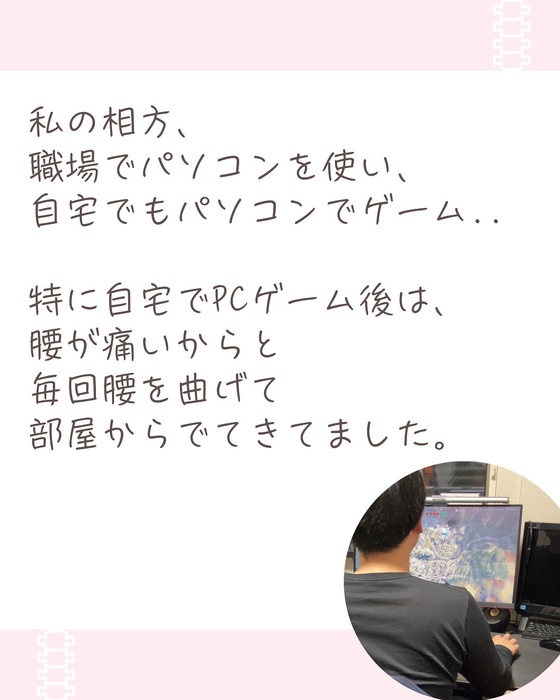 私の相方、
職場でパソコンを使い、
自宅でもパソコンでゲーム..
特に自宅でPCゲーム後は、
腰が痛いからと
毎回腰を曲げて
部屋からでてきてました。